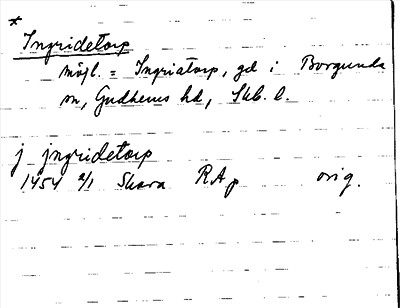 *
Ingridetorp
möjl. = Ingriatorp, gd i Borgunda
sn, Gudhems hd, Skb. l.
j jngridetorp
1454 2/1 Skara RAp orig.